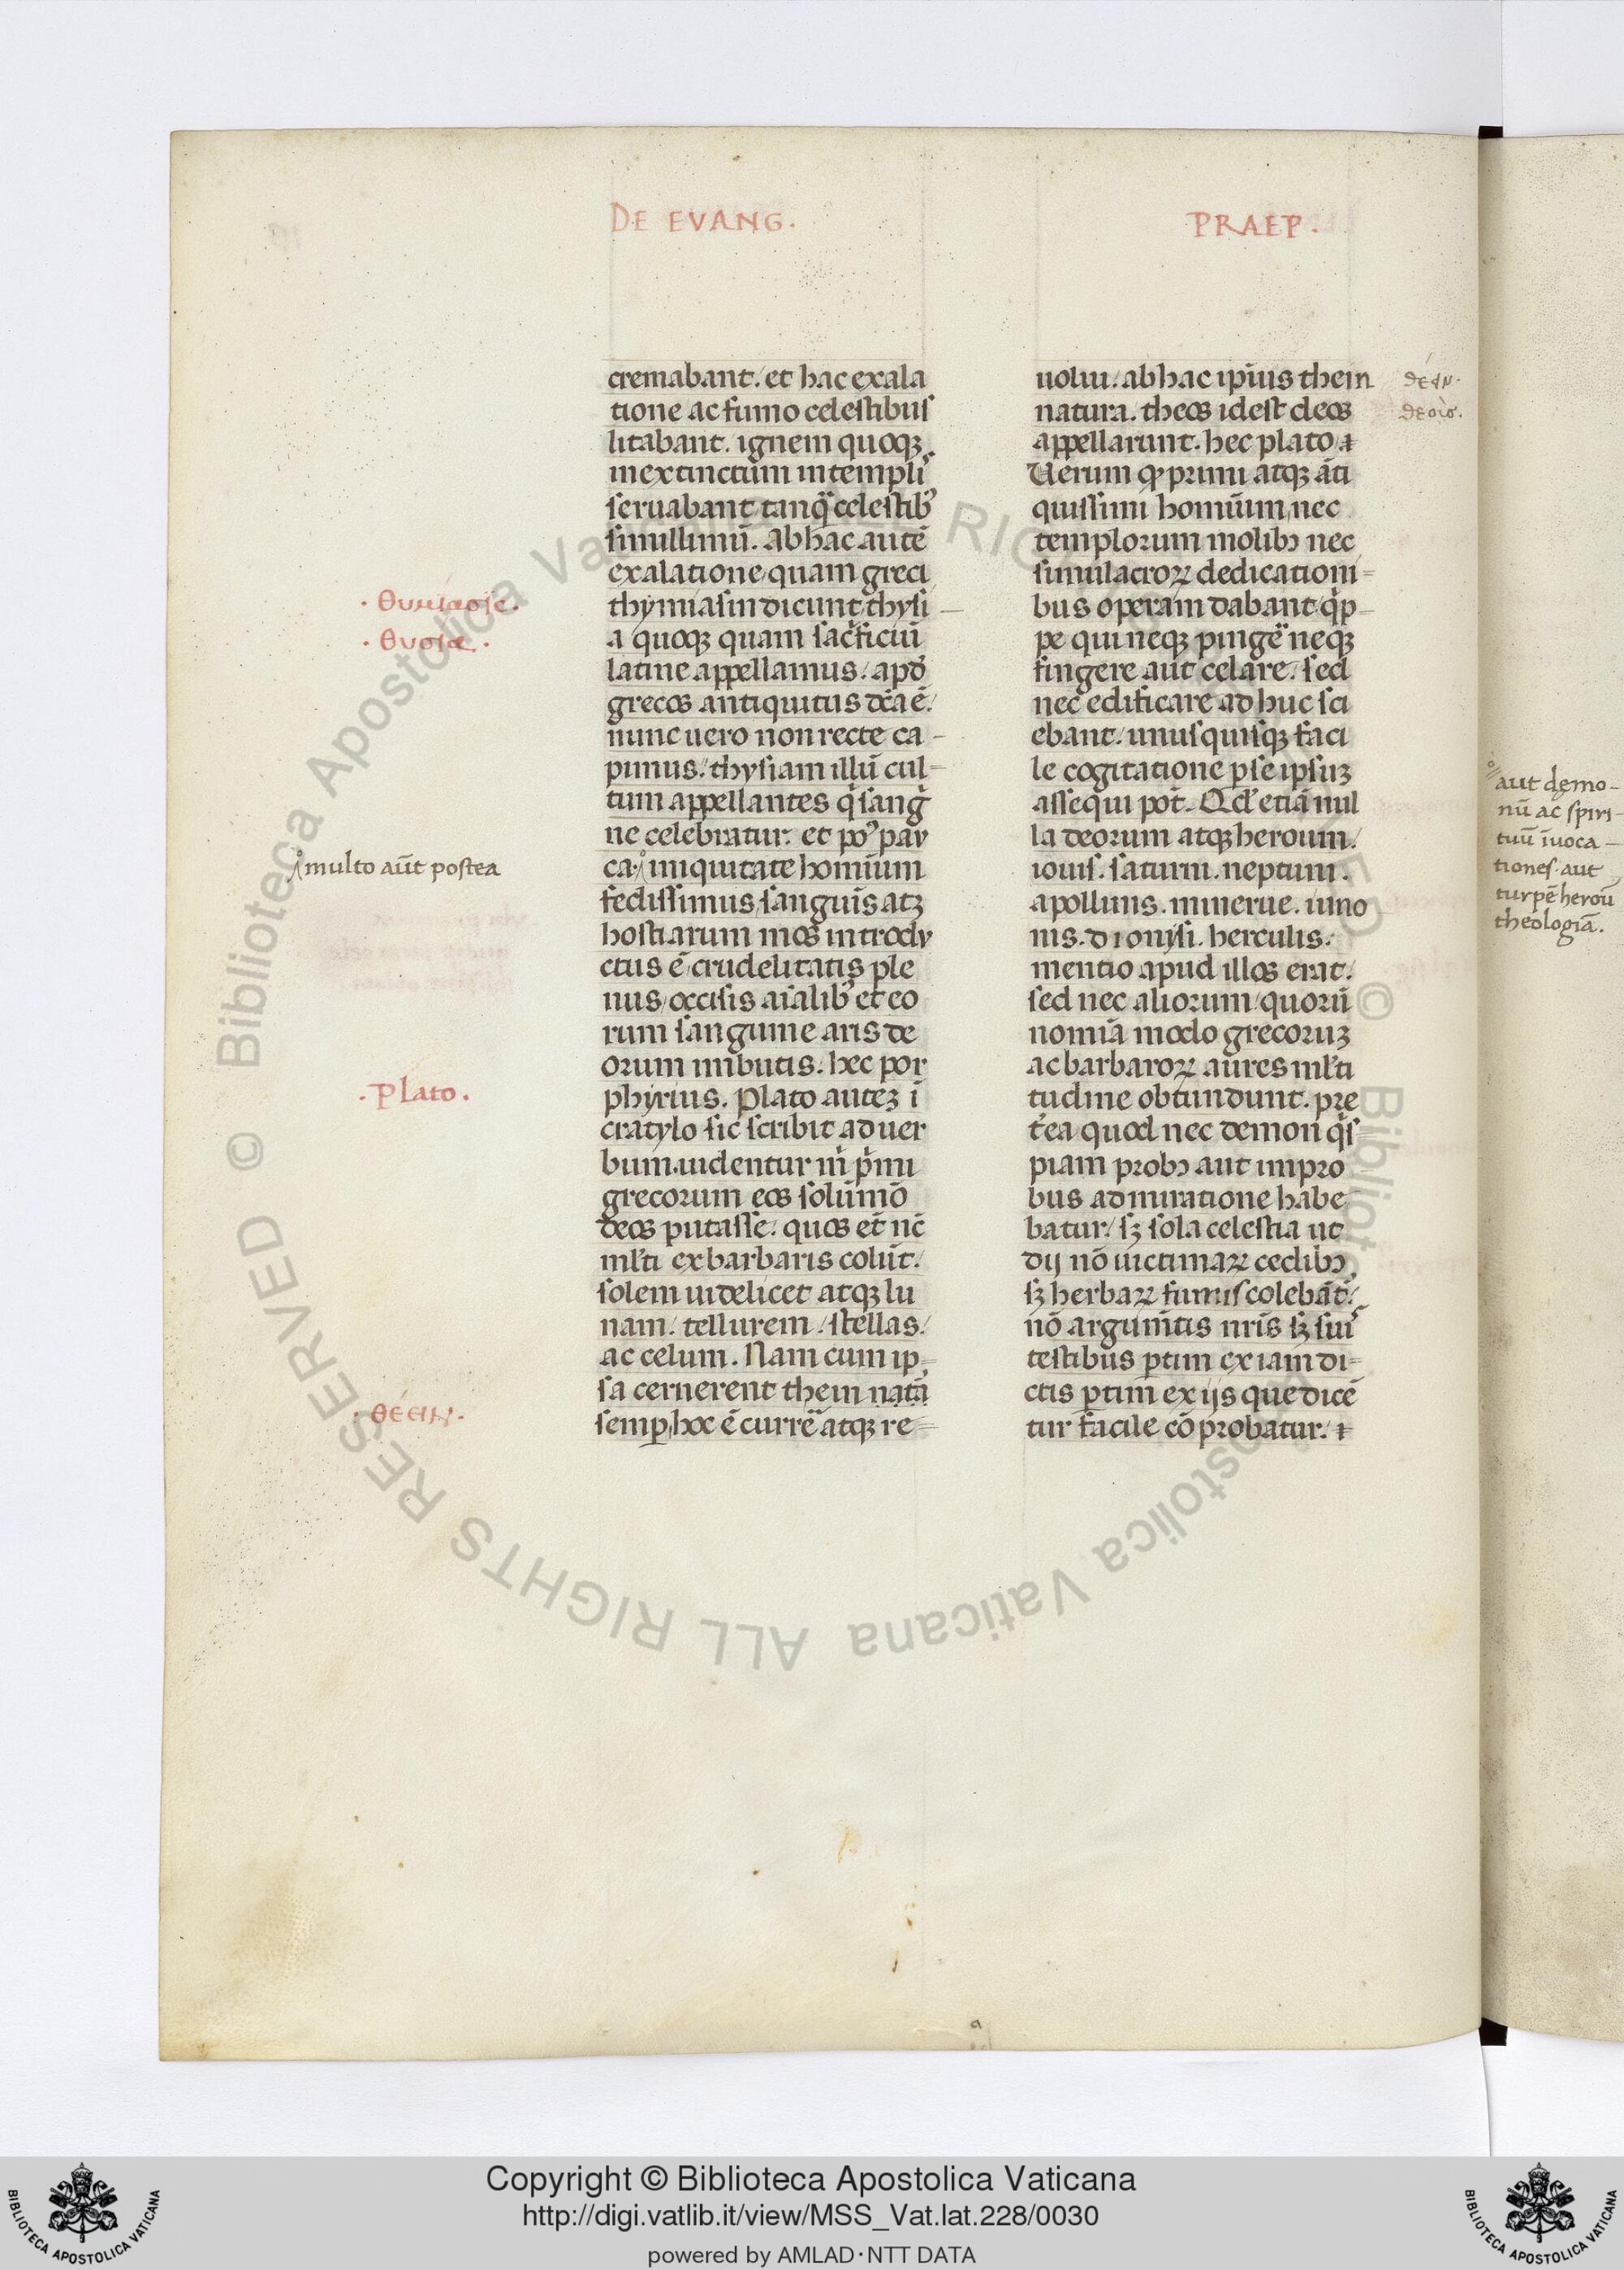 DE EVANG.
PRAEP.
cremabant. et hac exala
tione ac fumo celestibus
litabant. ignem quoqꝫ
inextinctum in templis
seruabant tanq̃ celestibꝰ
simillimū. Ab hac autē
exalatione quam greci
thymiasin dicunt thysi
a quoqꝫ quam sac̃ficiū
latine appellamus. apđ
grecos antiquitus dc̄a ē.
nunc uero non recte ca-
pimus. thysiam illū cul-
tum appellantes q̃ sang̃
ne celebratur. et poꝰ pau
ca. iniquitate hominum
fedissimus sanguis atqꝫ
hostiarum mos introdu
ctus ē crudelitatis ple
nus occisis aīalibꝰ et eo
rum sanguine aris de
orum imbutis. hec por
phyrius. Plato auteꝫ ī
cratylo sic scribit ad uer
bum. uidentur m̄ p̃mi
grecorum eos solūmō
deos putasse. quos et nc̄
ml̃ti ex barbaris colūt.
solem uidelicet atqꝫ lu
nam. tellurem. stellas.
ac celum. Nam cum ip-
sa cernerent them natā
semꝑ hoc ē currẽ atqꝫ re-
uolui. ab hac ipīus them
natura. theos idest deos
appellarunt. hec plato.
Uerum ꝙ primi atqꝫ āti
quissimi hominum nec
templorum molibꝫ nec
simulacroꝝ dedicationi-
bus operam dabant q̃p-
pe qui neqꝫ pingẽ neqꝫ
fingere aut celare. sed
nec edificare ad huc sci
ebant. unusquisqꝫ faci
le cogitatione ꝑ se ipsuꝫ
assequi pot̃. Qđ etiā nul
la deorum atqꝫ heroum.
iouis. saturni. neptuni.
apollinis. minerue. iuno
nis. dionysi. herculis.
mentio apud illos erat.
sed nec aliorum quorū
nomīa modo grecoruꝫ
ac barbaroꝝ aures ml̃ti
tudine obtundunt. pre
t̃ea quod nec demon q̃s
piam probꝫ aut impro
bus admiratione habe
batur. sꝫ sola celestia ut
dij nō uictimaꝝ cedibꝫ
sꝫ herbaꝝ fumis colebāt.
nō argum̃tis nr̄is sꝫ suis
testibus ꝑtim ex iam di-
ctis ꝑtim ex ijs que dicē
tur facile cōprobatur.
· θυμίασιϲ ·
· θυσία ·
multo aūt postea
· Plato ·
· θέειν ·
θέειν.
θεοὶσ.
aut dęmo-
nū ac spiri-
tuū īuoca-
tiones. aut
turpē heroū
theologiā.
© Biblioteca Apostolica Vaticana ALL RIGHTS RESERVED
Copyright © Biblioteca Apostolica Vaticana
http://digi.vatlib.it/view/MSS_Vat.lat.228/0030
powered by AMLAD·NTT DATA
BIBLIOTECA APOSTOLICA VATICANA
BIBLIOTECA APOSTOLICA VATICANA